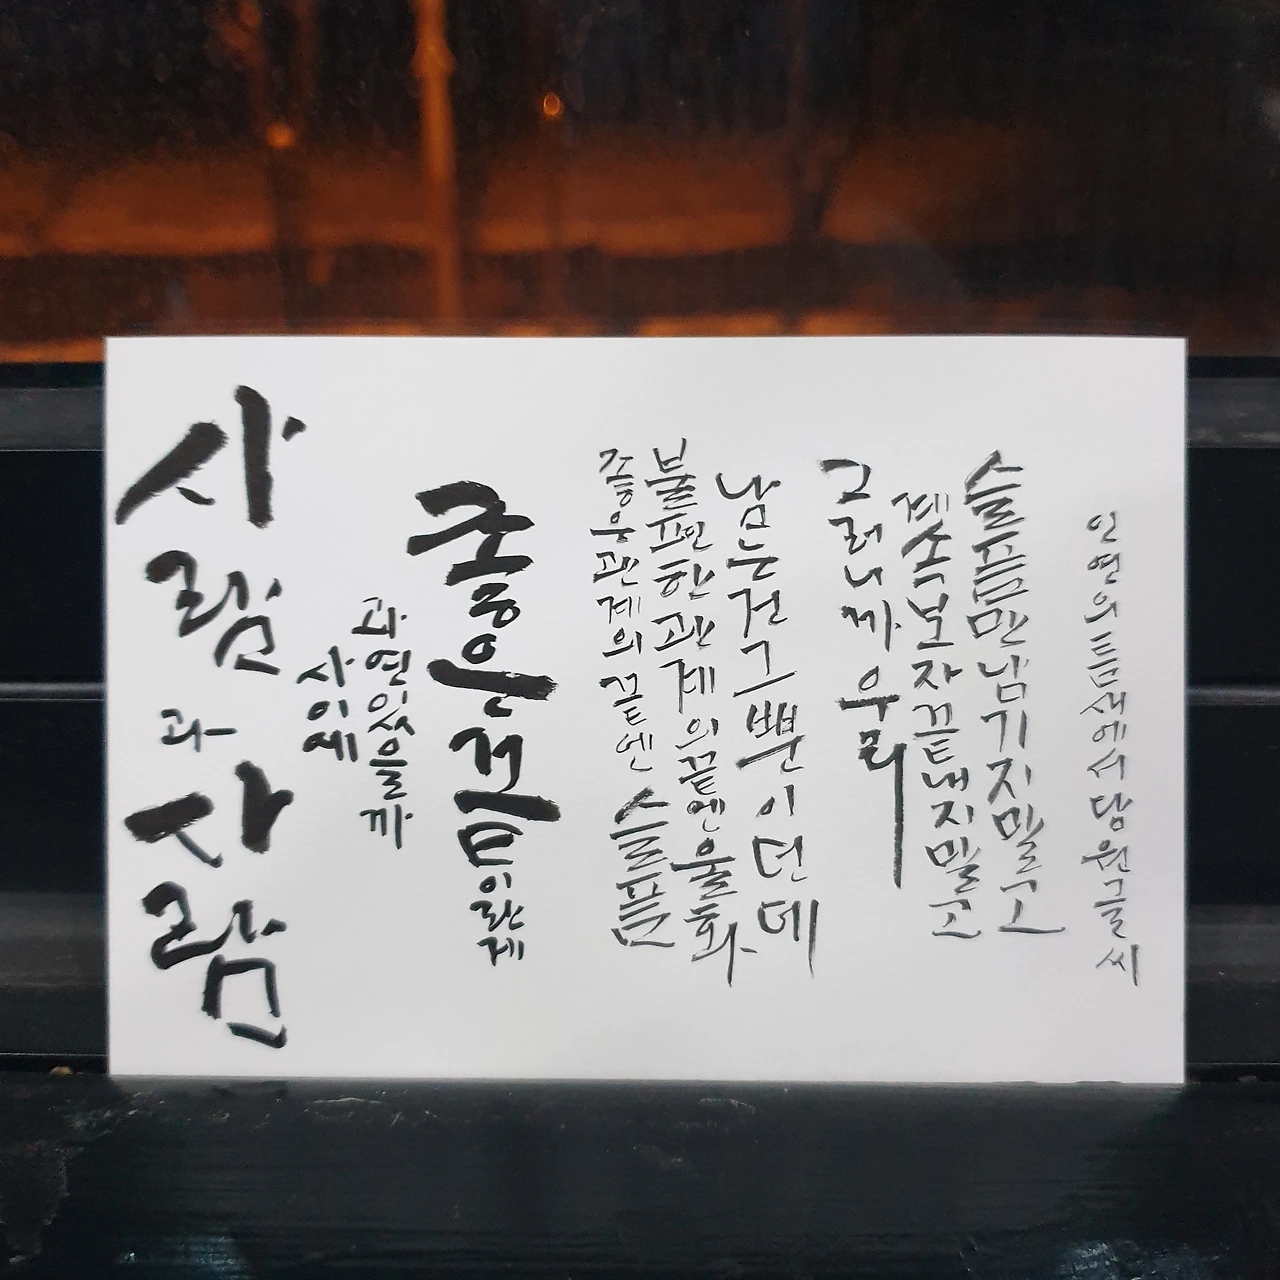 사람과사람
사이에
과연있을까
좋은것의관계
좋은관계의끝엔슬픔
불편한관계의끝엔울화
남는건그뿐이던데
그러니까우리
계속보자끝내지말고
슬픔만남기지말고
인연의틈새에서담원글씨